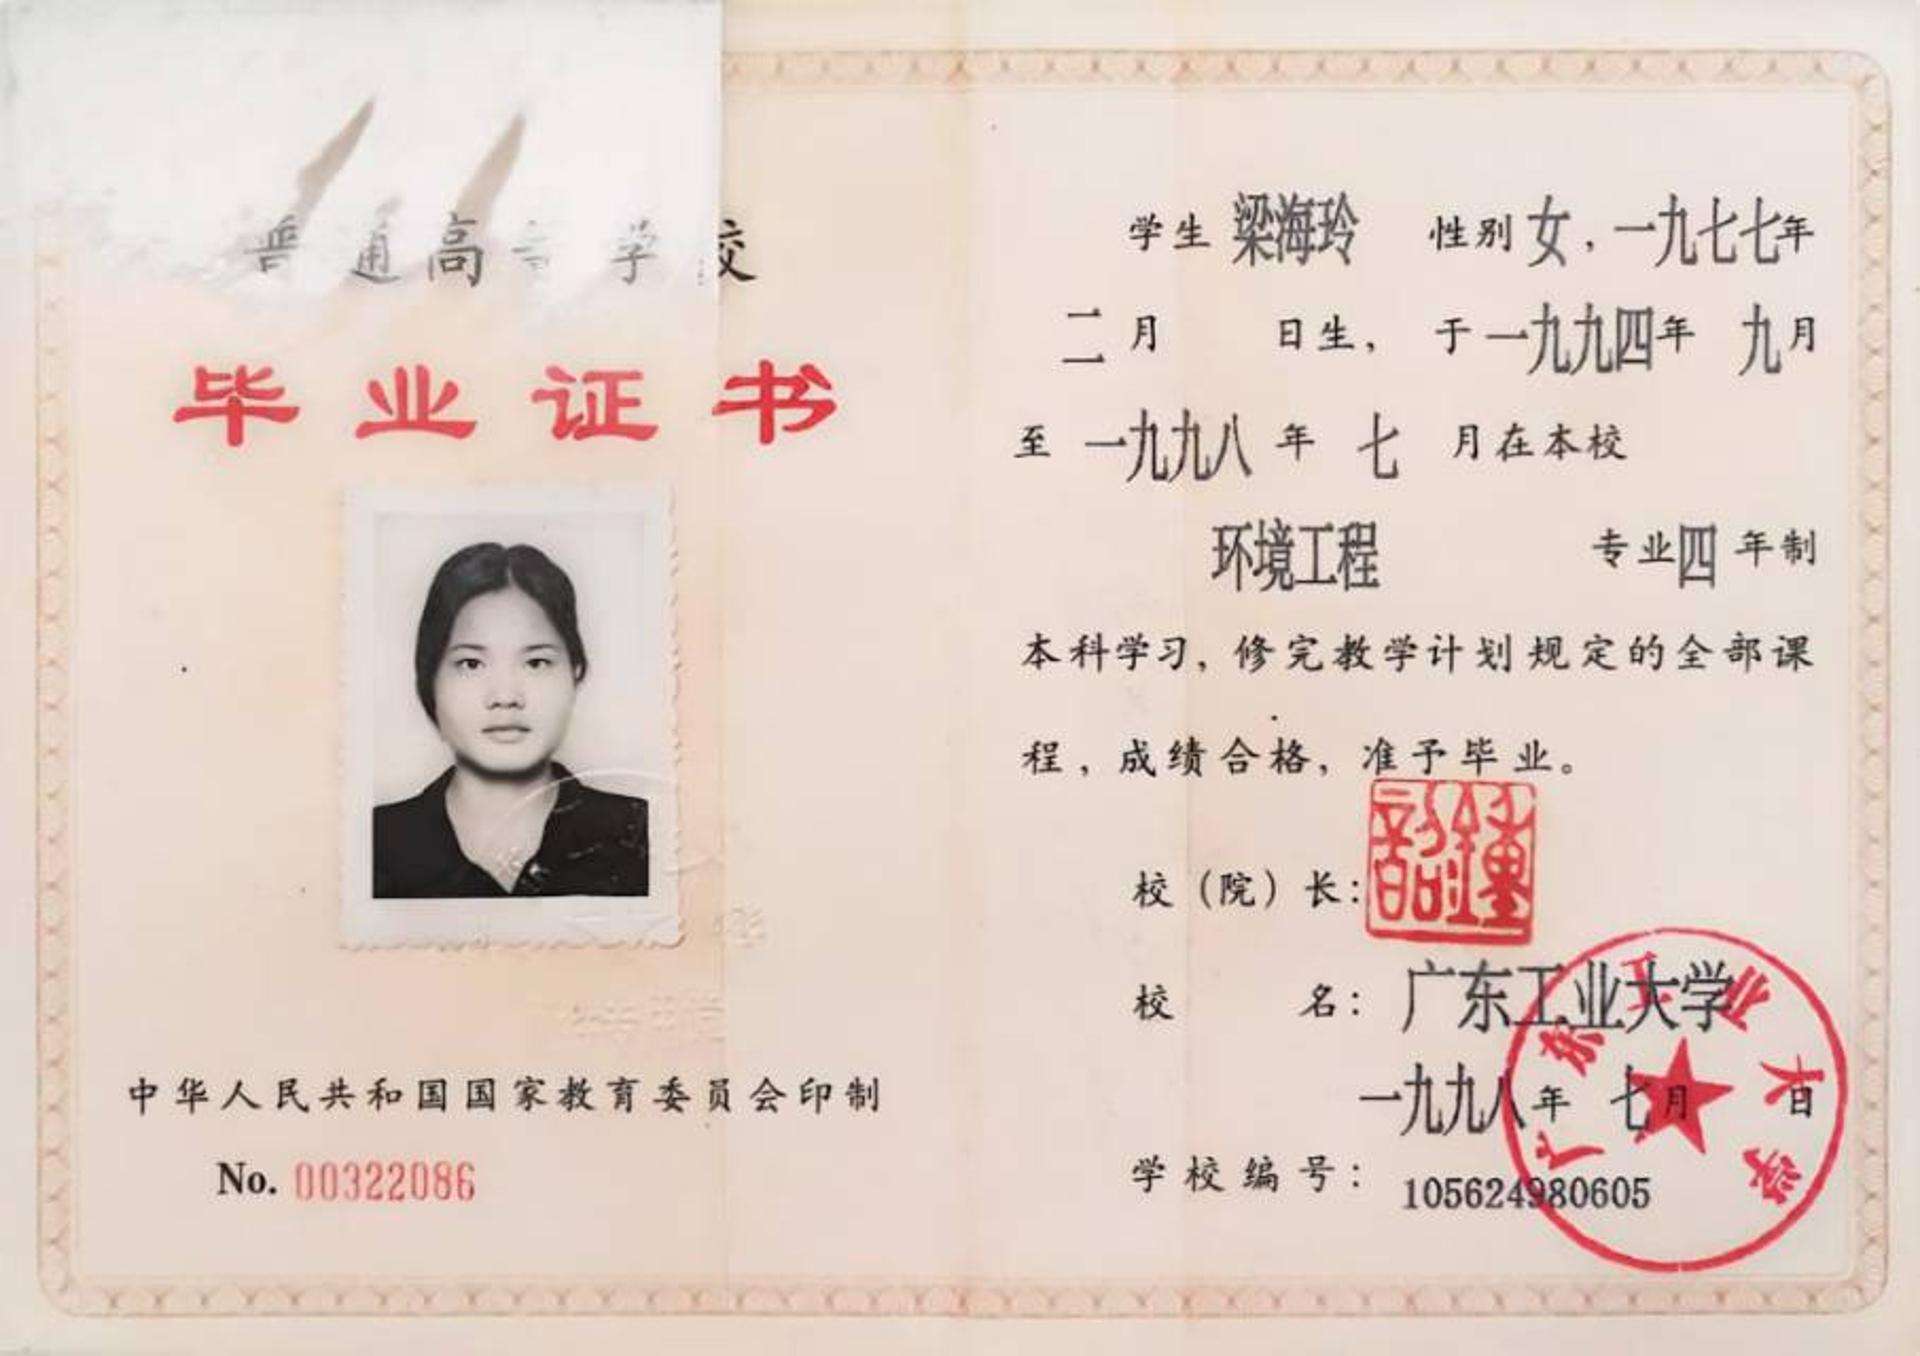 普通高等学校
毕业证书
中华人民共和国国家教育委员会印制
No. 00322086
学生 梁海玲 性别 女，一九七七年
二月 日生，于一九九四年 九月
至 一九九八 年 七 月在本校
环境工程 专业四 年制
本科学习，修完教学计划规定的全部课
程，成绩合格，准予毕业。
校（院）长：
鐘韶
校 名：广东工业大学
广东工业大学
一九九八年 七月 日
学校编号：105624980605